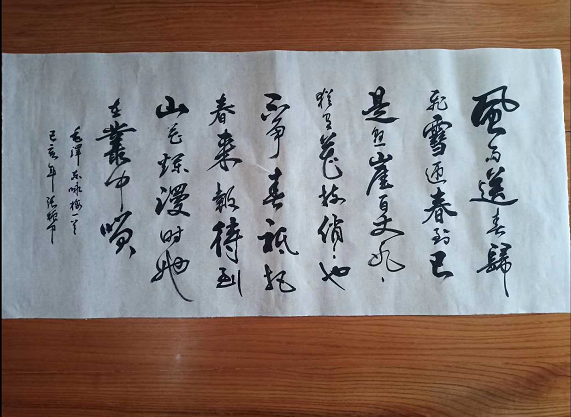 風雨送春歸
飛雪迎春到已
是悬崖百丈冰、
犹有花枝俏、也
不争春祗把
春来報待到
山花爛漫时她
在叢中笑
毛澤东咏梅一首
己亥年